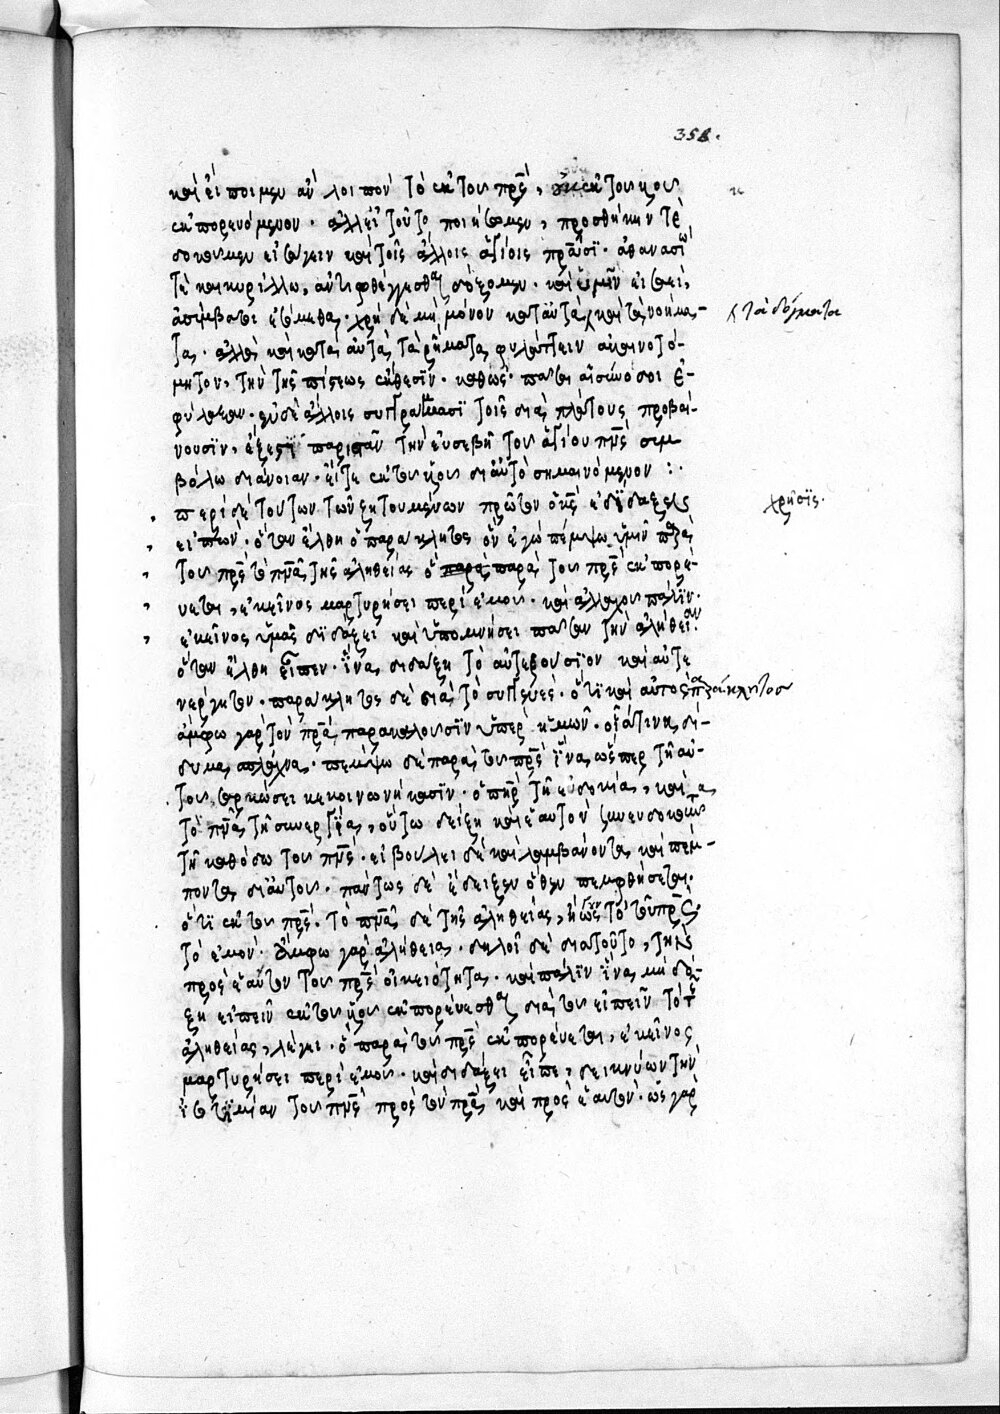 358.
καὶ εἴποιμεν ἂν λοιπὸν τὸ ἐκ τοῦ πρς, ἐκ τοῦ υἱοῦ
ἐκπορευόμενον. ἀλλ' εἰ τοῦτο ποιήσομεν, προσθήκην τε
δοκοῦμεν εἰσάγειν καὶ τοῖς ἄλλοις ἁγίοις πράσι. ἀθανασίω
τὲ καὶ κυρίλλω, ἀντιφθέγγεσθαι δόξομεν. καὶ ὑμῖν εἰσαεὶ,
ἀσύμβατοι ἐσόμεθα. χρὴ δὲ μὴ μόνον κατ' αὐτὰ καὶ τὰ νοήμα-
⟨ τὰ δόγματα
τα. ἀλλὰ καὶ κατὰ αὐτὰ τὰ ῥήματα φυλάττειν ἀκαινοτό-
μητον, τὴν τῆς πίστεως ἔκθεσιν. καθὼς πᾶσαι αἱ σύνοδοι ἐ-
φύλαξαν. ἐν δὲ ἄλλοις συγγράμμασι τοῖς διὰ πλάτους προβαί-
νουσιν, ἔξεστι παριστᾶν τὴν εὐσεβῆ τοῦ ἁγίου πνς συμ
βόλω διάνοιαν. εἴτε ἐκ τοῦ υἱοῦ δι' αὐτὸ σημαινόμενον :·
περὶ δὲ τούτων τῶν ζητουμένων πρῶτον ὁ κς ἐδίδαξεν
χρῆσις.
εἰπών. ὅταν ἔλθη ὁ παράκλητος ὃν ἐγὼ πέμψω ὑμῖν παρὰ
τοῦ πρς τὸ πνα τῆς ἀληθείας ὃ παρὰ τοῦ πρς ἐκπορεύ-
εται, ἐκεῖνος μαρτυρήσει περὶ ἐμοῦ. καὶ ἀλλαχοῦ πάλιν.
ἐκεῖνος ὑμᾶς διδάξει καὶ ὑπομνήσει πᾶσαν τὴν ἀλήθειαν.
ὅταν ἔλθη εἶπεν. ἵνα διδάξη τὸ αὐτεξούσιον καὶ αὐτε
νέργητον. παράκλητος δὲ διὰ τὸ συγγενές. ὅτι καὶ αὐτὸς παράκλητος
ἄμφω γὰρ τὸν πρα παρακαλοῦσιν ὑπὲρ ἡμῶν.
πέμψω δὲ παρὰ τοῦ πρς ἵνα ὥσπερ τῆ αὐ-
τοῦ σαρκώσει κεκοινωνήκασιν. ὁ πηρ τῆ εὐδοκία, καὶ
τὸ πνα τῆ συνεργία, οὕτω δείξη καὶ ἑαυτὸν συνευδοκοῦντα
τῆ καθόδω τοῦ πνς. εἰ βούλει δὲ καὶ λαμβάνοντα καὶ πέμ-
ποντα δι' αὐτοῦ. πάντως δὲ ἔδειξεν ὅθεν πεμφθήσεται.
ὅτι ἐκ τοῦ πρς. τὸ πνα δὲ τῆς ἀληθείας, ἢ ὡς τὸ τοῦ πρς.
τὸ ἐμόν. ἄμφω γὰρ ἀλήθεια. δηλοῖ δὲ διὰ τοῦτο, τὴν
πρὸς ἑαυτὸν τοῦ πρς οἰκειότητα. καὶ πάλιν ἵνα μὴ δό-
ξη εἰπεῖν ἐκ τοῦ υἱοῦ ἐκπορεύεσθαι διὰ τοῦ εἰπεῖν τὸ τῆς
ἀληθείας, λέγει. ὃ παρὰ τοῦ πρς ἐκπορεύεται, ἐκεῖνος
μαρτυρήσει περὶ ἐμοῦ. καὶ διδάξει εἶπε, δεικνύων τὴν
ἰσοτιμίαν τοῦ πνς πρὸς τὸν πρα καὶ πρὸς ἑαυτόν. ὡς γὰρ